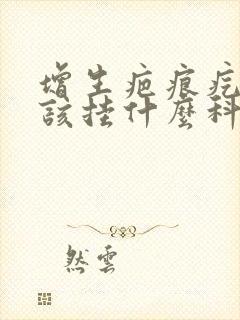 增生疤痕疙
該挂什麼科
然雲